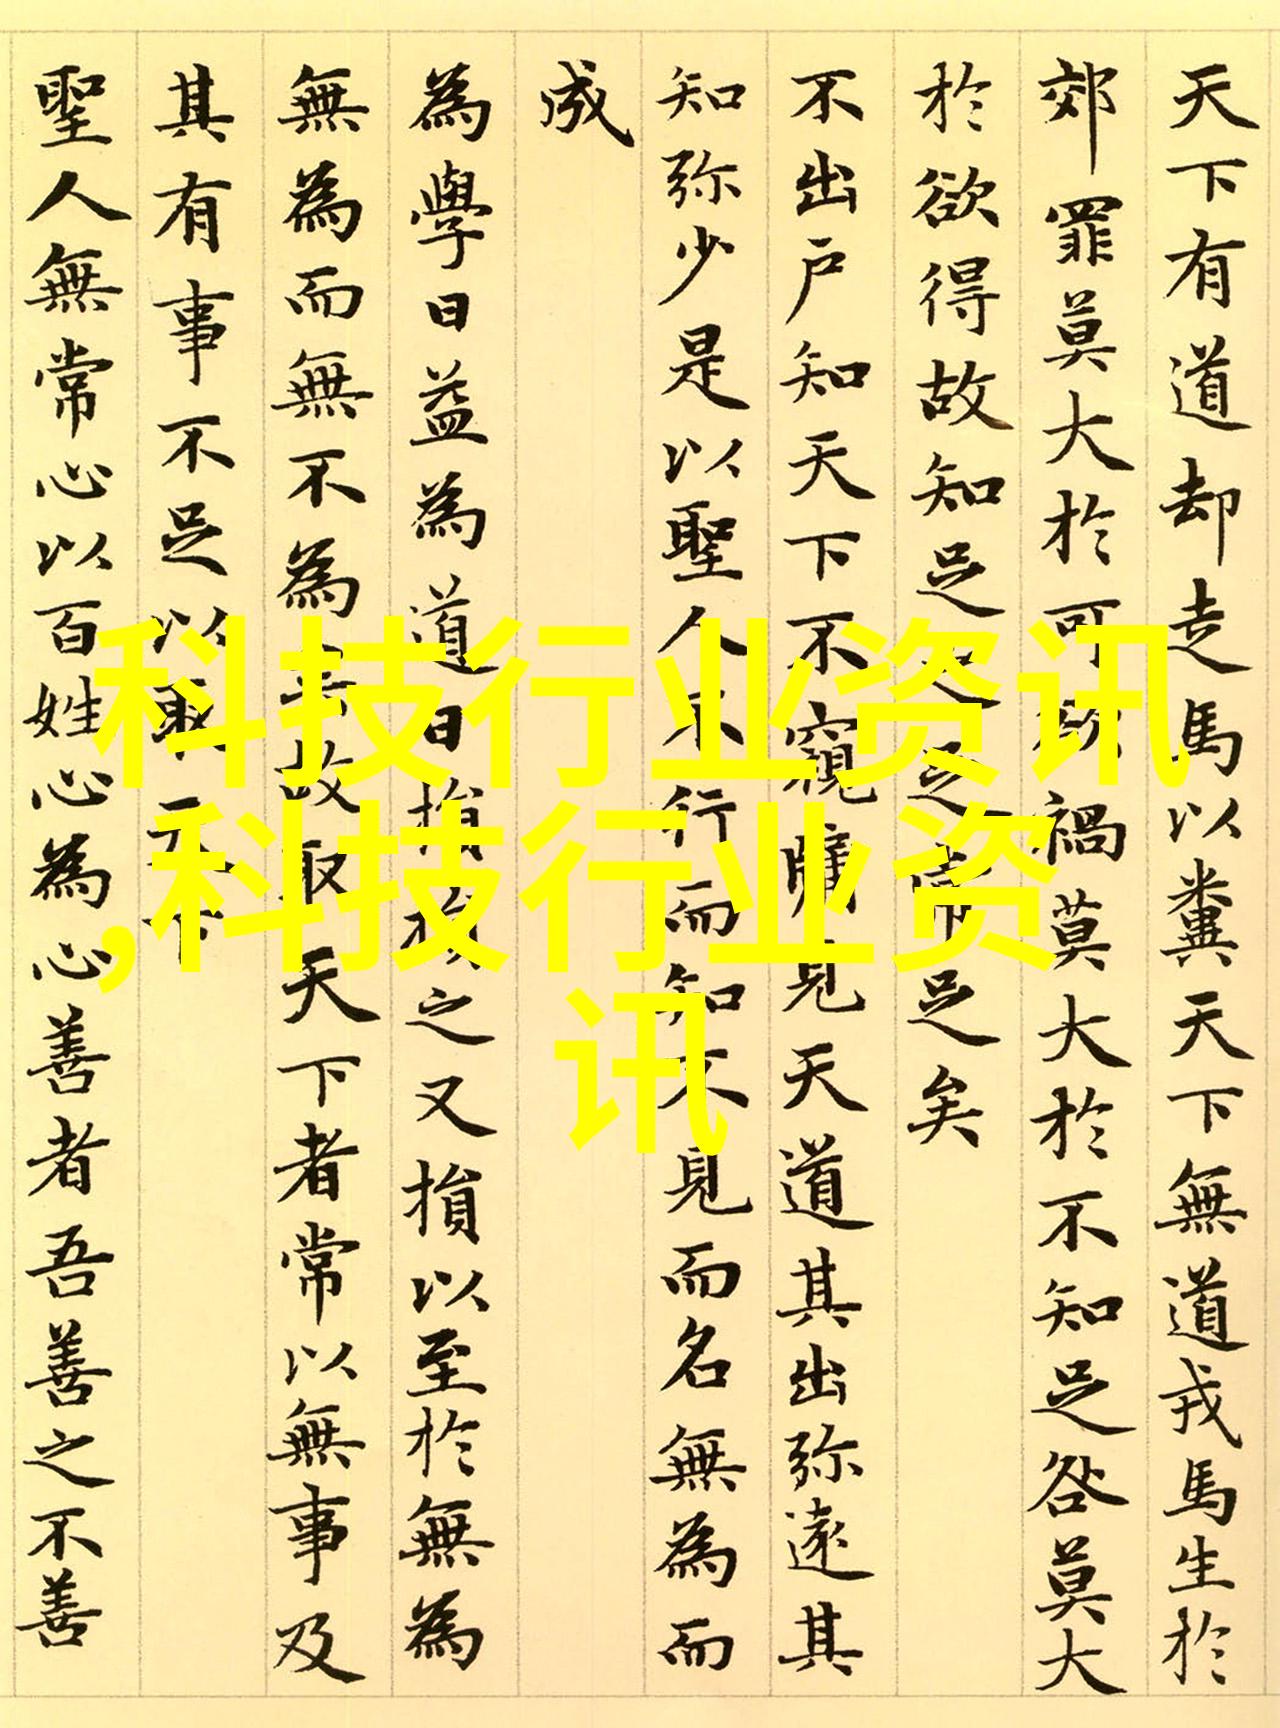 天下有道却走馬以糞天下無道戎馬生於
郊罪莫大於可欲禍莫大於不知足咎莫大
於欲得故知足之足常足矣
不出户知天下不窺牖見天道其出弥遠其
知弥少是以聖人不行而知不見而名無為而
成
為學日益為道日損損之又損以至於無為
無為而無不為故取天下者常以無事及
其有事不足以取天下
聖人無常心以百姓心為心善者吾善之不善
科技行业资讯
,科技行业资
讯